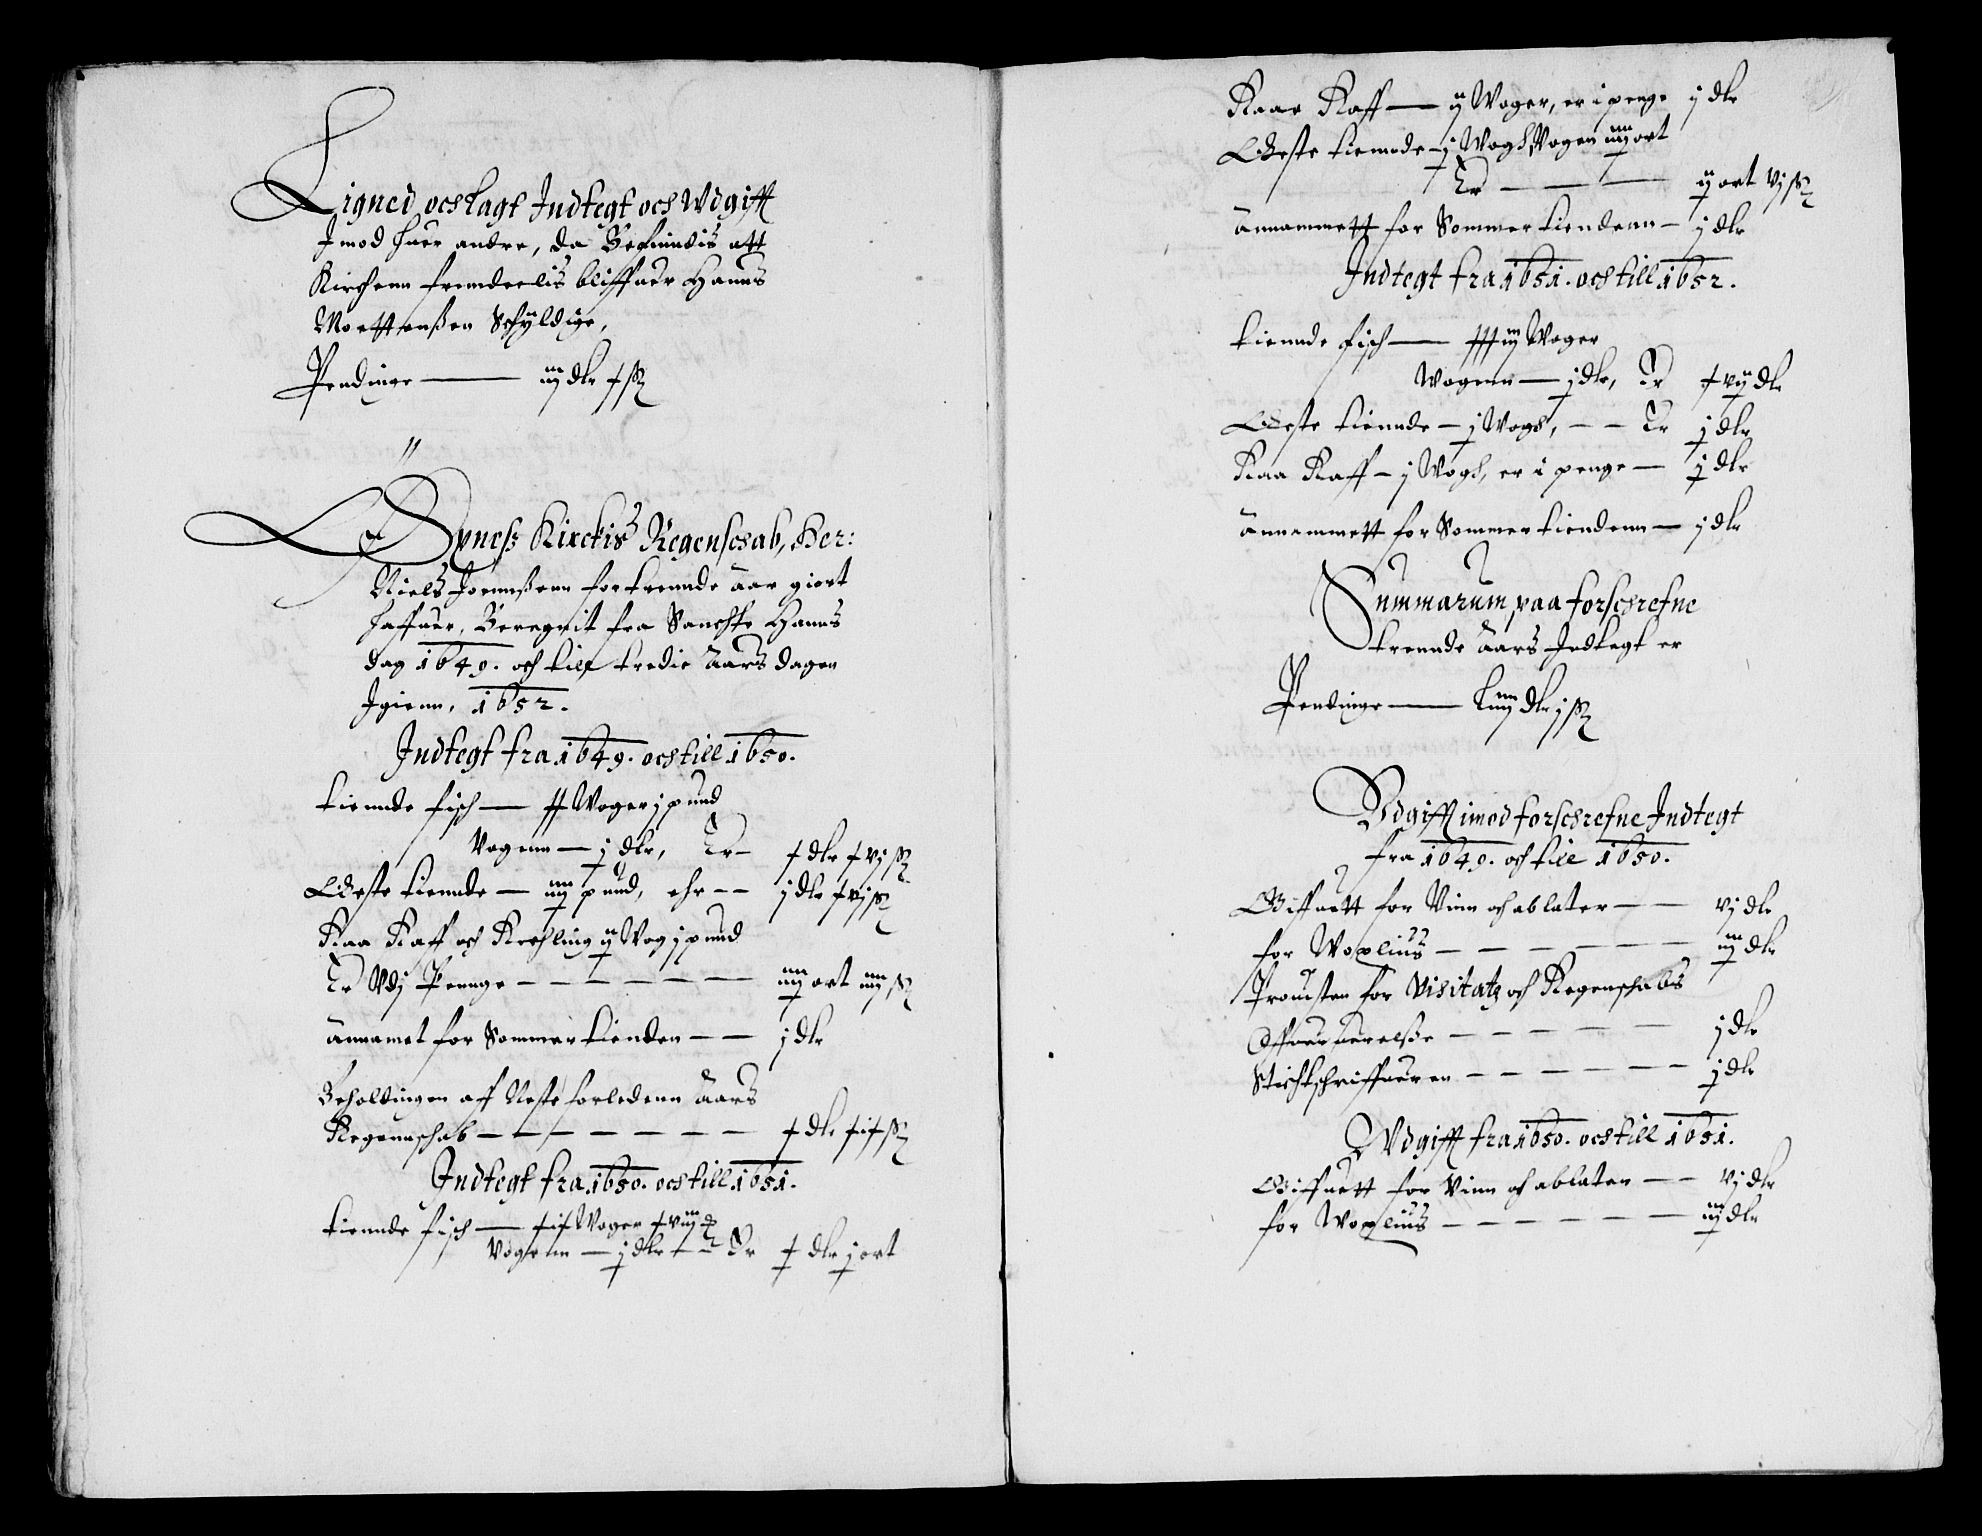 Ligned och lagt Indtegt och Wdgifft
Imod huer andre, da Befindis att
Kirchenn fremdeelis bliffuer Hanns
Mortenßen Schÿldige,
Pendinge — iiij dlr x ß
Dyneß Kirckis Regenschab, Her:
Niels Joennßenn for trennde Aar giort
haffuer, Beregnit fra Sanchte Hanns
dag 1649. och till tredie Aars dagen
Igienn, 1652.
Indtegt fra 1649. och till 1650.
tiennde fisch — xx Woger j pund
Vogenn — j dlr, Er — x dlr xvj ß
Qwegs tiennde — iiij pund, ehr — — j dlr xvj ß
Kaa Kaff och Krehling ij Wog j pund
Er Vdj Pennge — — — — — — iiij ort iiij ß
Annamet for Sommer tienden — — j dlr
Beholdingen aff Neste forledenn Aars
Regennschab — — — — — — — x dlr xix ß
Indtegt fra 1650. och till 1651.
tiennde fisch — xix Woger xviij
Vogenn — j dlr — — Er x dlr j ort
Kaar Kaff — ij Woger, er i penge j dlr
tiennde — j Wogh, Vogen iiij ort
Er — — — ij ort vj ß
Annammett for Sommer tiendenn — j dlr
Indtegt fra 1651. och till 1652.
tiennde fisch — xxxiiij Woger
Wogenn — j dlr, Er xvij dlr
tiennde — j Wogh, — — Er j dlr
Kaa Kaff — j Wogh, er i penge — j dlr
Annammett for Sommer tiendenn — j dlr
Summarum paa forschrefne
trennde Aars Indtegt er
Pendinge — Liiij dlr j ß
Vdgifft imod forschrefne Indtegt
fra 1649. och till 1650.
Giffuett for Vinn och ablater — — vj dlr
for Woxliuß — — — — — — — iiij dlr
Prousten for Visitatz och Regenschabs
Offueruerelße — — — — — — j dlr
Stichtschriffueren — — — — — — j dlr
Wdgifft fra 1650. och till 1651.
Giffuett for Vinn och ablaten — — vj dlr
for Woxliuß — — — — — — — iiij dlr